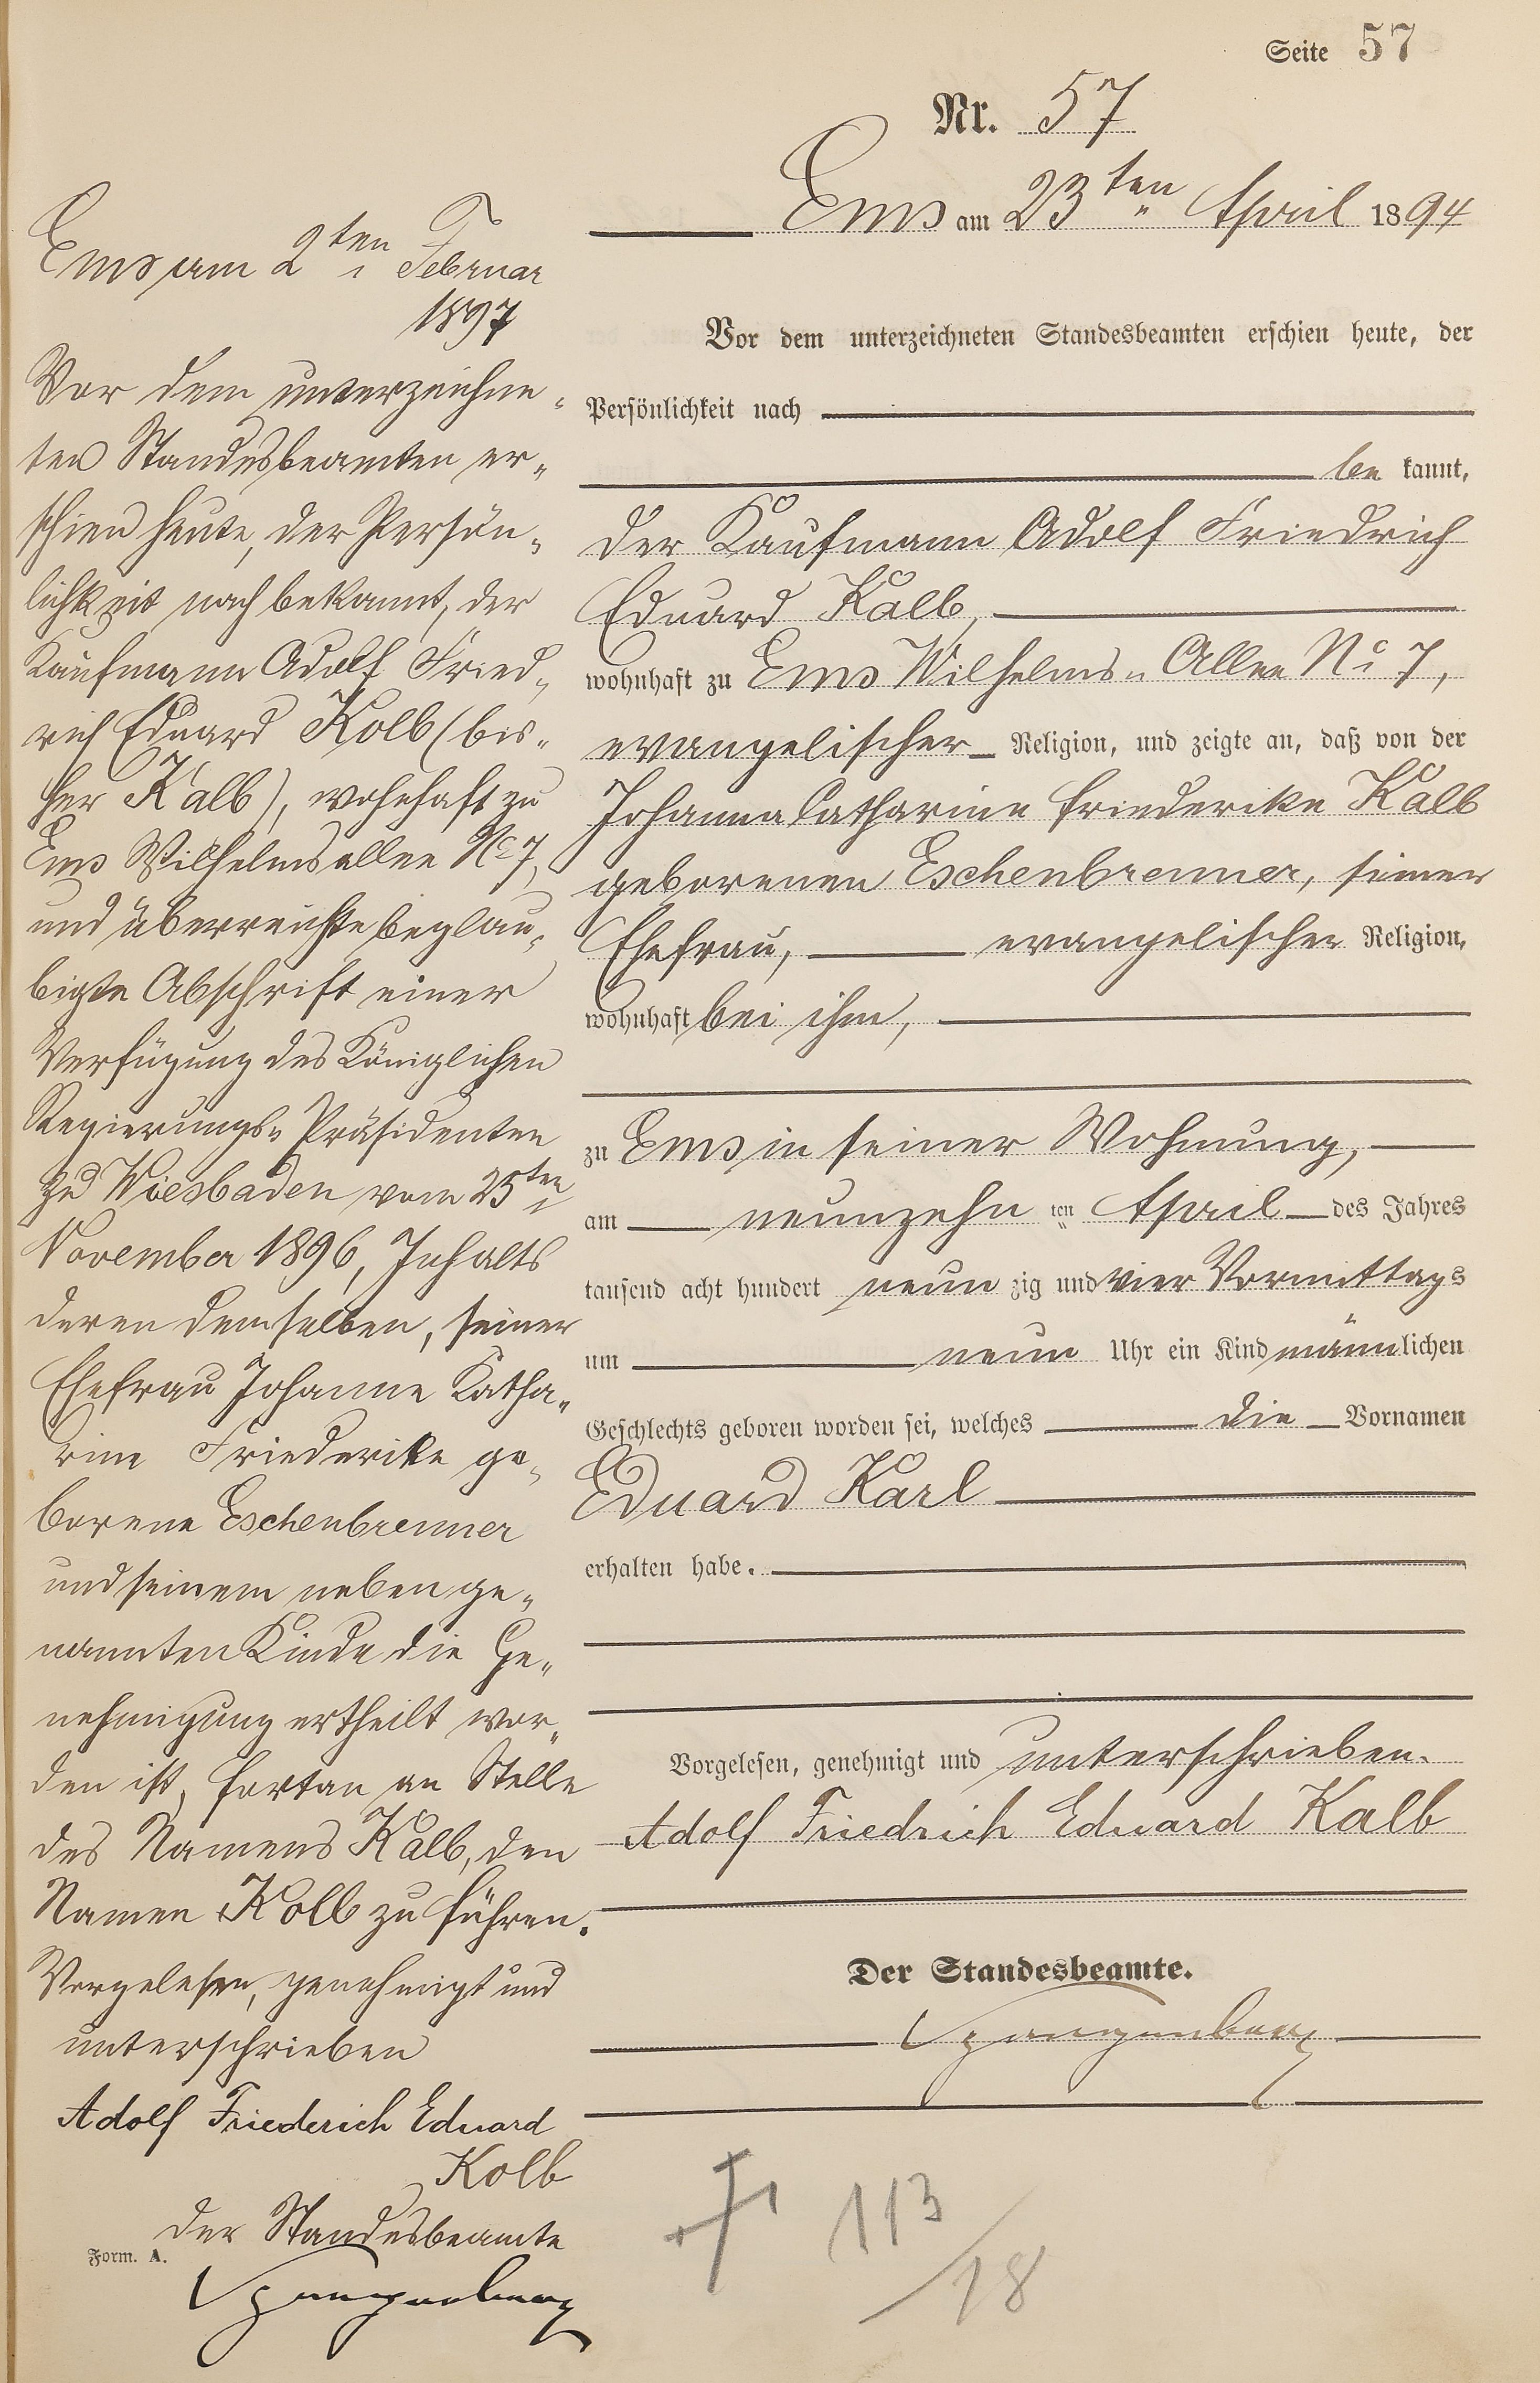 Seite 57
Nr. 57
Ems am 23ten April 1894
Vor dem unterzeichneten Standesbeamten erschien heute, der
Persönlichkeit nach
be kannt,
der Kaufmann Adolf Friedrich
Eduard Kalb,
wohnhaft zu Ems Wilhelms-Allee No 7,
evangelischer Religion, und zeigte an, daß von der
Johanna Catharine Friederike Kalb
geborenen Eschenbrenner, seiner
Ehefrau, evangelischer Religion,
wohnhaft bei ihm,
zu Ems in seiner Wohnung,
am neunzehn ten April des Jahres
tausend acht hundert neun zig und vier Vormittags
um neun Uhr ein Kind männlichen
Geschlechts geboren worden sei, welches die Vornamen
Eduard Karl
erhalten habe.
Vorgelesen, genehmigt und unterschrieben.
Adolf Friedrich Eduard Kalb
Der Standesbeamte.
Spangenberg
Ems am 2ten Februar
1897
Vor dem unterzeichne-
ten Standesbeamten er-
schien heute, der Persön-
lichkeit nach bekannt, der
Kaufmann Adolf Fried-
rich Eduard Kolb (bis-
her Kalb), wohnhaft zu
Ems Wilhelmsallee No 7,
und überreichte beglau-
bigte Abschrift einer
Verfügung des Königlichen
Regierungs-Präsidenten
zu Wiesbaden vom 25ten
November 1896, Inhalts
deren demselben, seiner
Ehefrau Johanne Katha-
rine Friederike ge-
borene Eschenbrenner
und seinem neben ge-
nannten Kinde die Ge-
nehmigung ertheilt wor-
den ist, fortan an Stelle
des Namens Kalb, den
Namen Kolb zu führen.
Vorgelesen, genehmigt und
unterschrieben
Adolf Friederich Eduard
Kolb
Der Standesbeamte
Spangenberg
Form. A.
113
/18